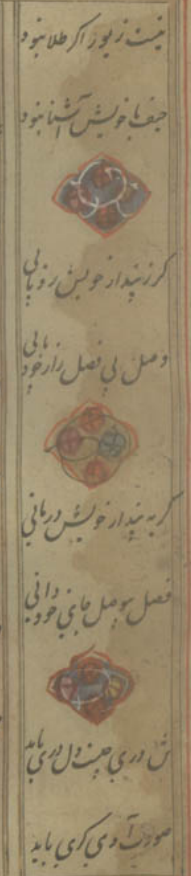 نیست زیور اگر طلا نبود
حیف با خویش آشنا نبود
کر ز پندار خویش رو یابی
وصل بی فصل را ز خود یابی
کر به پندار خویش درمانی
فصل بی وصل جای خود دانی
دری چیست دل دری باید
صورت آدمی کری باید